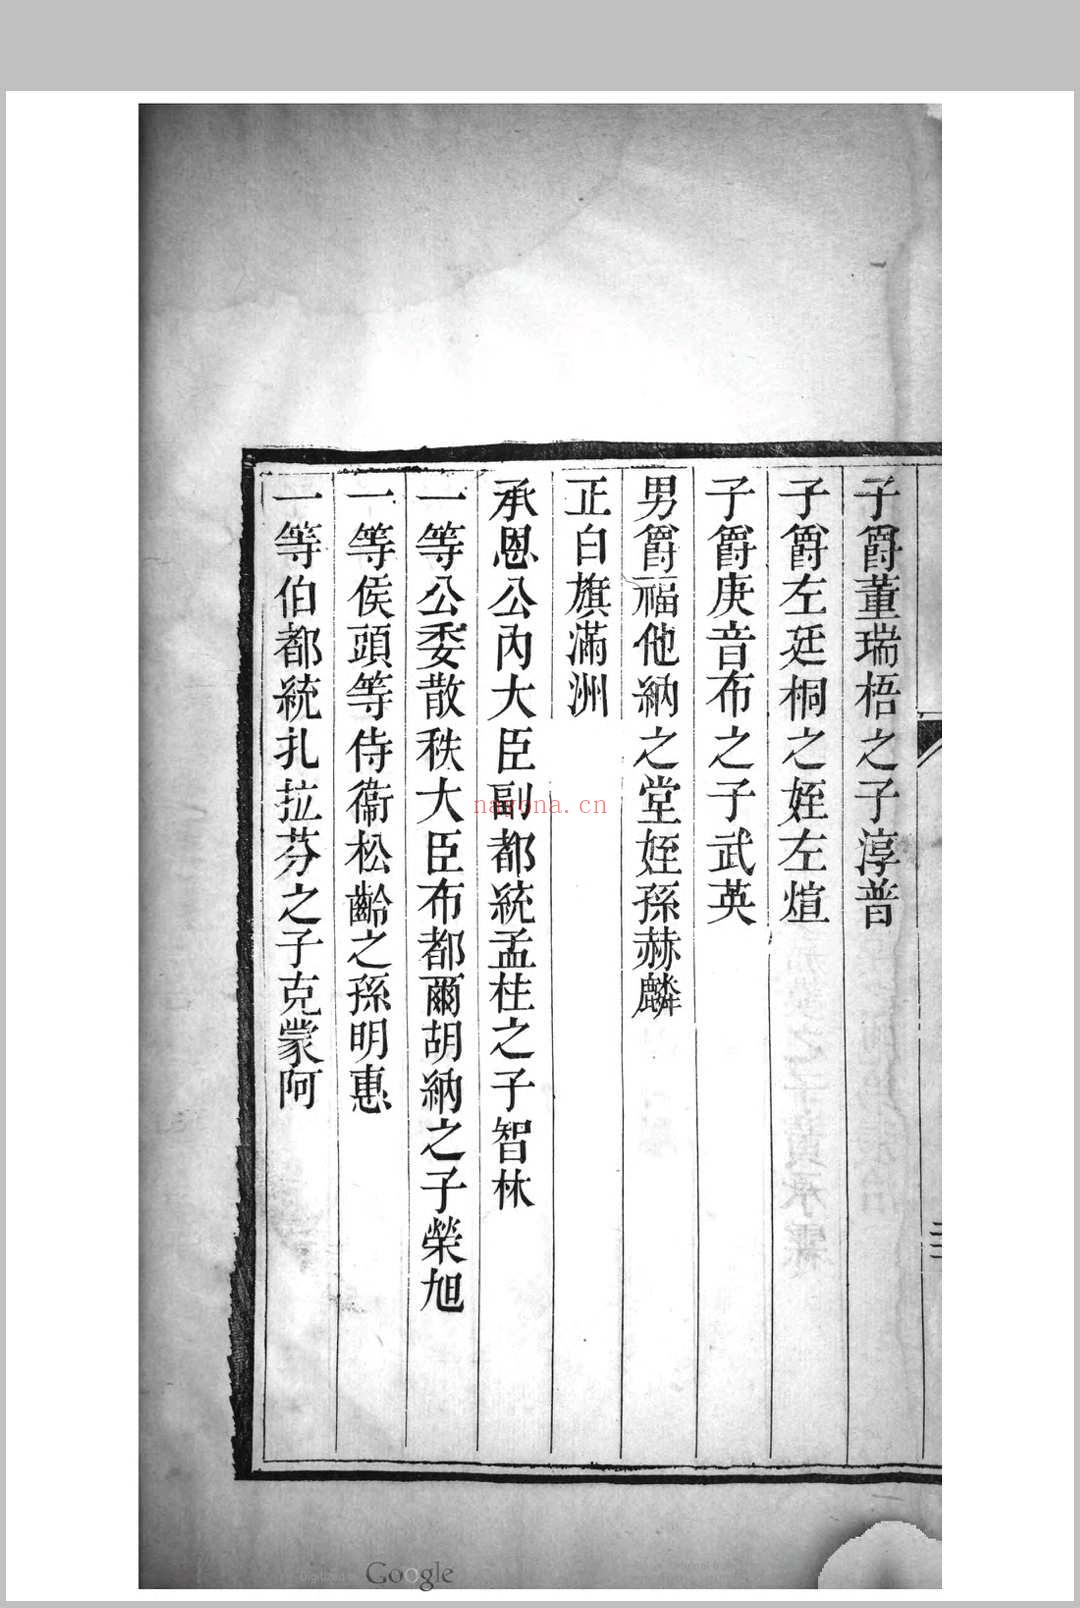 子爵董瑞梧之子淳普
子爵左廷桐之姪左煊
子爵庚音布之子武英
男爵福他納之堂姪孫赫麟
正白旗滿洲
承恩公內大臣副都統孟柱之子智林
一等公委散秩大臣布都爾胡納之子榮旭
一等侯頭等侍衞松齡之孫明惠
一等伯都統扎拉芬之子克蒙阿
nayona.cn
Digitized by Google